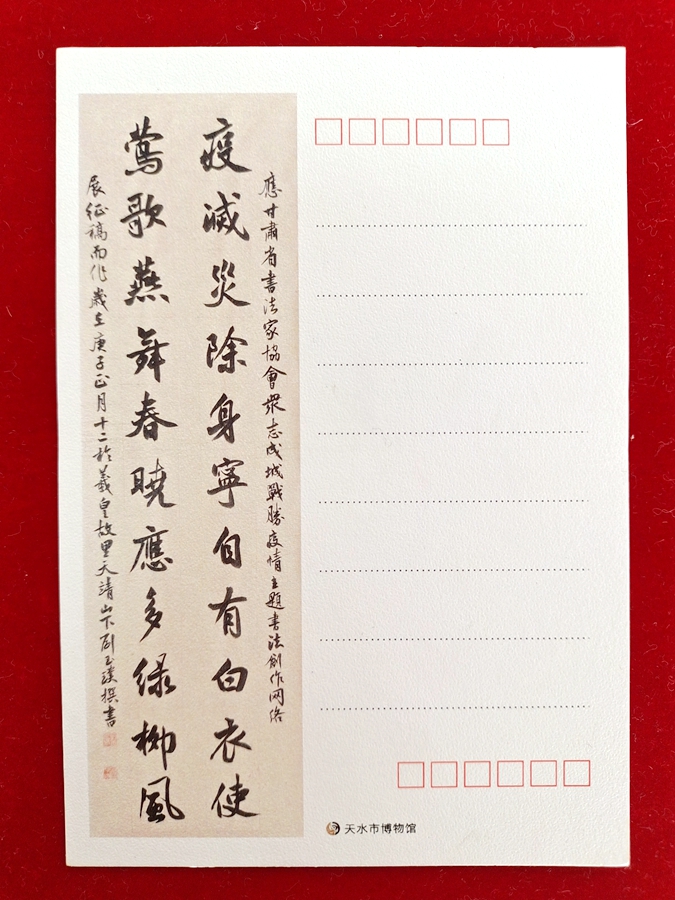 應甘肅省書法家協會衆志成城戰勝疫情主題書法創作网络
疫滅災除身寧自有白衣使
莺歌燕舞春曉應多绿柳風
展征稿而作歲在庚子正月十二於羲皇故里天靖山下劉玉璞撰書
天水市博物馆